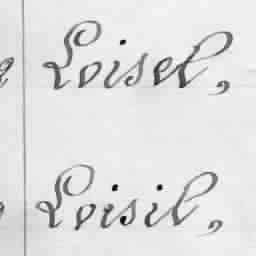 Loisel,
Loisil,